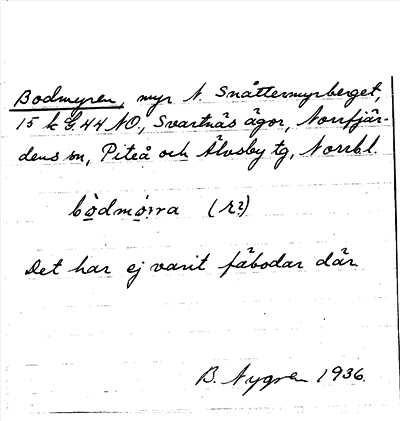 Bodmyren, myr N. Snåttermyrberget,
15 k G. 44 NO., Svartnäs ägor, Norrfjär-
dens sn, Piteå och Älvsby tg, Norrbl.
bòdmörra (r?)
Det har ej varit fäbodar där
B. Nygren 1936.